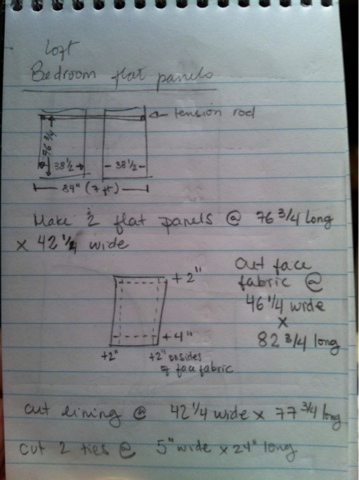 Loft
Bedroom flat panels
tension rod
76 3/4
38 1/2
38 1/2
84" (7 ft)
Make 2 flat panels @ 76 3/4 long
x 42 1/4 wide
+2"
+4"
+2"
+2" on sides
of face fabric
Cut face
fabric @
46 1/4 wide
x
82 3/4 long
Cut lining @ 42 1/4 wide x 77 3/4 long
Cut 2 ties @ 5" wide x 24" long